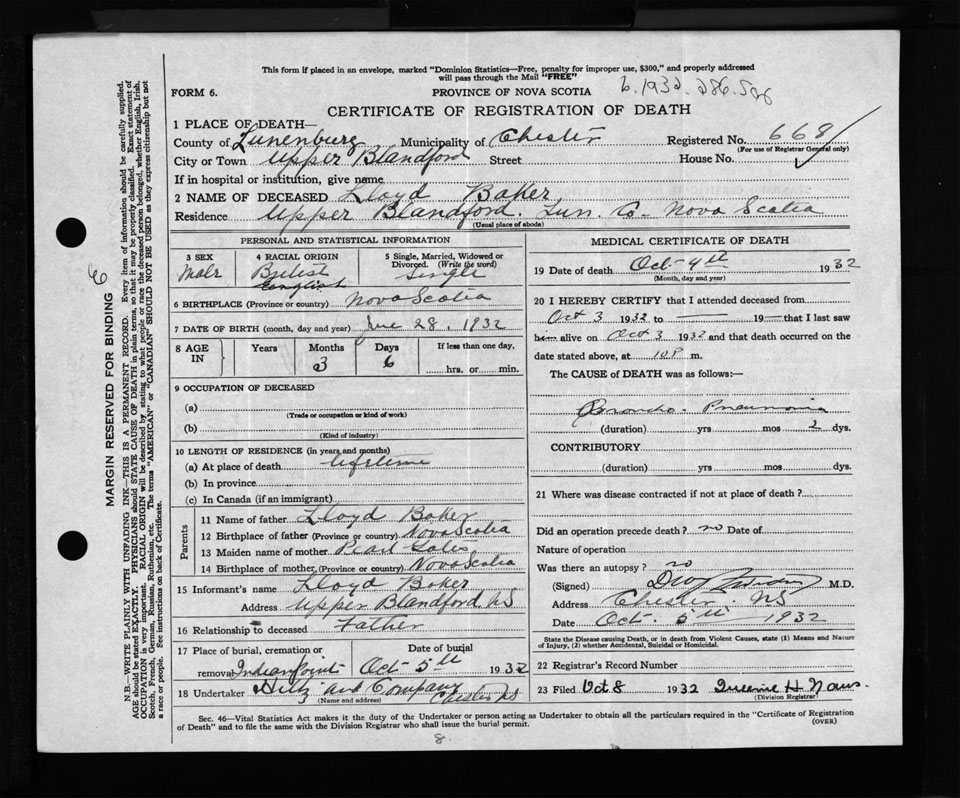 This form if placed in an envelope, marked "Dominion Statistics—Free, penalty for improper use, $300," and properly addressed
will pass through the Mail "FREE"
FORM 6.
PROVINCE OF NOVA SCOTIA
b. 1932. 286.
CERTIFICATE OF REGISTRATION OF DEATH
1 PLACE OF DEATH—
County of Lunenburg Municipality of Chester Registered No. 668
(For use of Registrar General only)
City or Town Upper Blandford Street House No.
If in hospital or institution, give name
2 NAME OF DECEASED Lloyd Baker
Residence Upper Blandford. Lun. Co. Nova Scotia
(Usual place of abode)
PERSONAL AND STATISTICAL INFORMATION
3 SEX 4 RACIAL ORIGIN 5 Single, Married, Widowed or Divorced. (Write the word)
Male British English Single
6 BIRTHPLACE (Province or country) Nova Scotia
7 DATE OF BIRTH (month, day and year) June 28, 1932
8 AGE IN Years Months Days If less than one day,
3 6 hrs. or min.
9 OCCUPATION OF DECEASED
(a)
(Trade or occupation or kind of work)
(b)
(Kind of industry)
10 LENGTH OF RESIDENCE (in years and months)
(a) At place of death lifetime
(b) In province
(c) In Canada (if an immigrant)
Parents
11 Name of father Lloyd Baker
12 Birthplace of father (Province or country) Nova Scotia
13 Maiden name of mother Pearl
14 Birthplace of mother (Province or country) Nova Scotia
15 Informant's name Lloyd Baker
Address Upper Blandford NS
16 Relationship to deceased Father
17 Place of burial, cremation or removal Date of burial
Indian Point Oct 5th 1932
18 Undertaker Hiltz and Company Chester NS
(Name and address)
MEDICAL CERTIFICATE OF DEATH
19 Date of death Oct 4th 1932
(Month, day and year)
20 I HEREBY CERTIFY that I attended deceased from
Oct 3 1932 to — 19— that I last saw
h alive on Oct 3 1932 and that death occurred on the
date stated above, at 10 P m.
The CAUSE of DEATH was as follows:—
Broncho-Pneumonia
(duration) yrs mos 2 dys.
CONTRIBUTORY
(duration) yrs mos dys.
21 Where was disease contracted if not at place of death?
Did an operation precede death? no Date of
Nature of operation
Was there an autopsy? no
(Signed) M.D.
Address Chester NS
Date Oct 5th 1932
State the Disease causing Death, or in death from Violent Causes, state (1) Means and Nature
of Injury, (2) whether Accidental, Suicidal or Homicidal.
22 Registrar's Record Number
23 Filed Oct 8 1932 H.
(Division Registrar)
Sec. 46—Vital Statistics Act makes it the duty of the Undertaker or person acting as Undertaker to obtain all the particulars required in the "Certificate of Registration
of Death" and to file the same with the Division Registrar who shall issue the burial permit.
(OVER)
8.
MARGIN RESERVED FOR BINDING
N.B.—WRITE PLAINLY WITH UNFADING INK—THIS IS A PERMANENT RECORD. Every item of information should be carefully supplied.
AGE should be stated EXACTLY. PHYSICIANS should STATE CAUSE OF DEATH in plain terms, so that it may be properly classified. Exact statement of
OCCUPATION is very important. RACIAL ORIGIN will be described by stating to what people or race the deceased person belonged, whether English, Irish,
Scotch, French, German, Russian, Ruthenian, etc. The terms "AMERICAN" or "CANADIAN" SHOULD NOT BE USED as they express citizenship but not
a race or people. See instructions on back of Certificate.